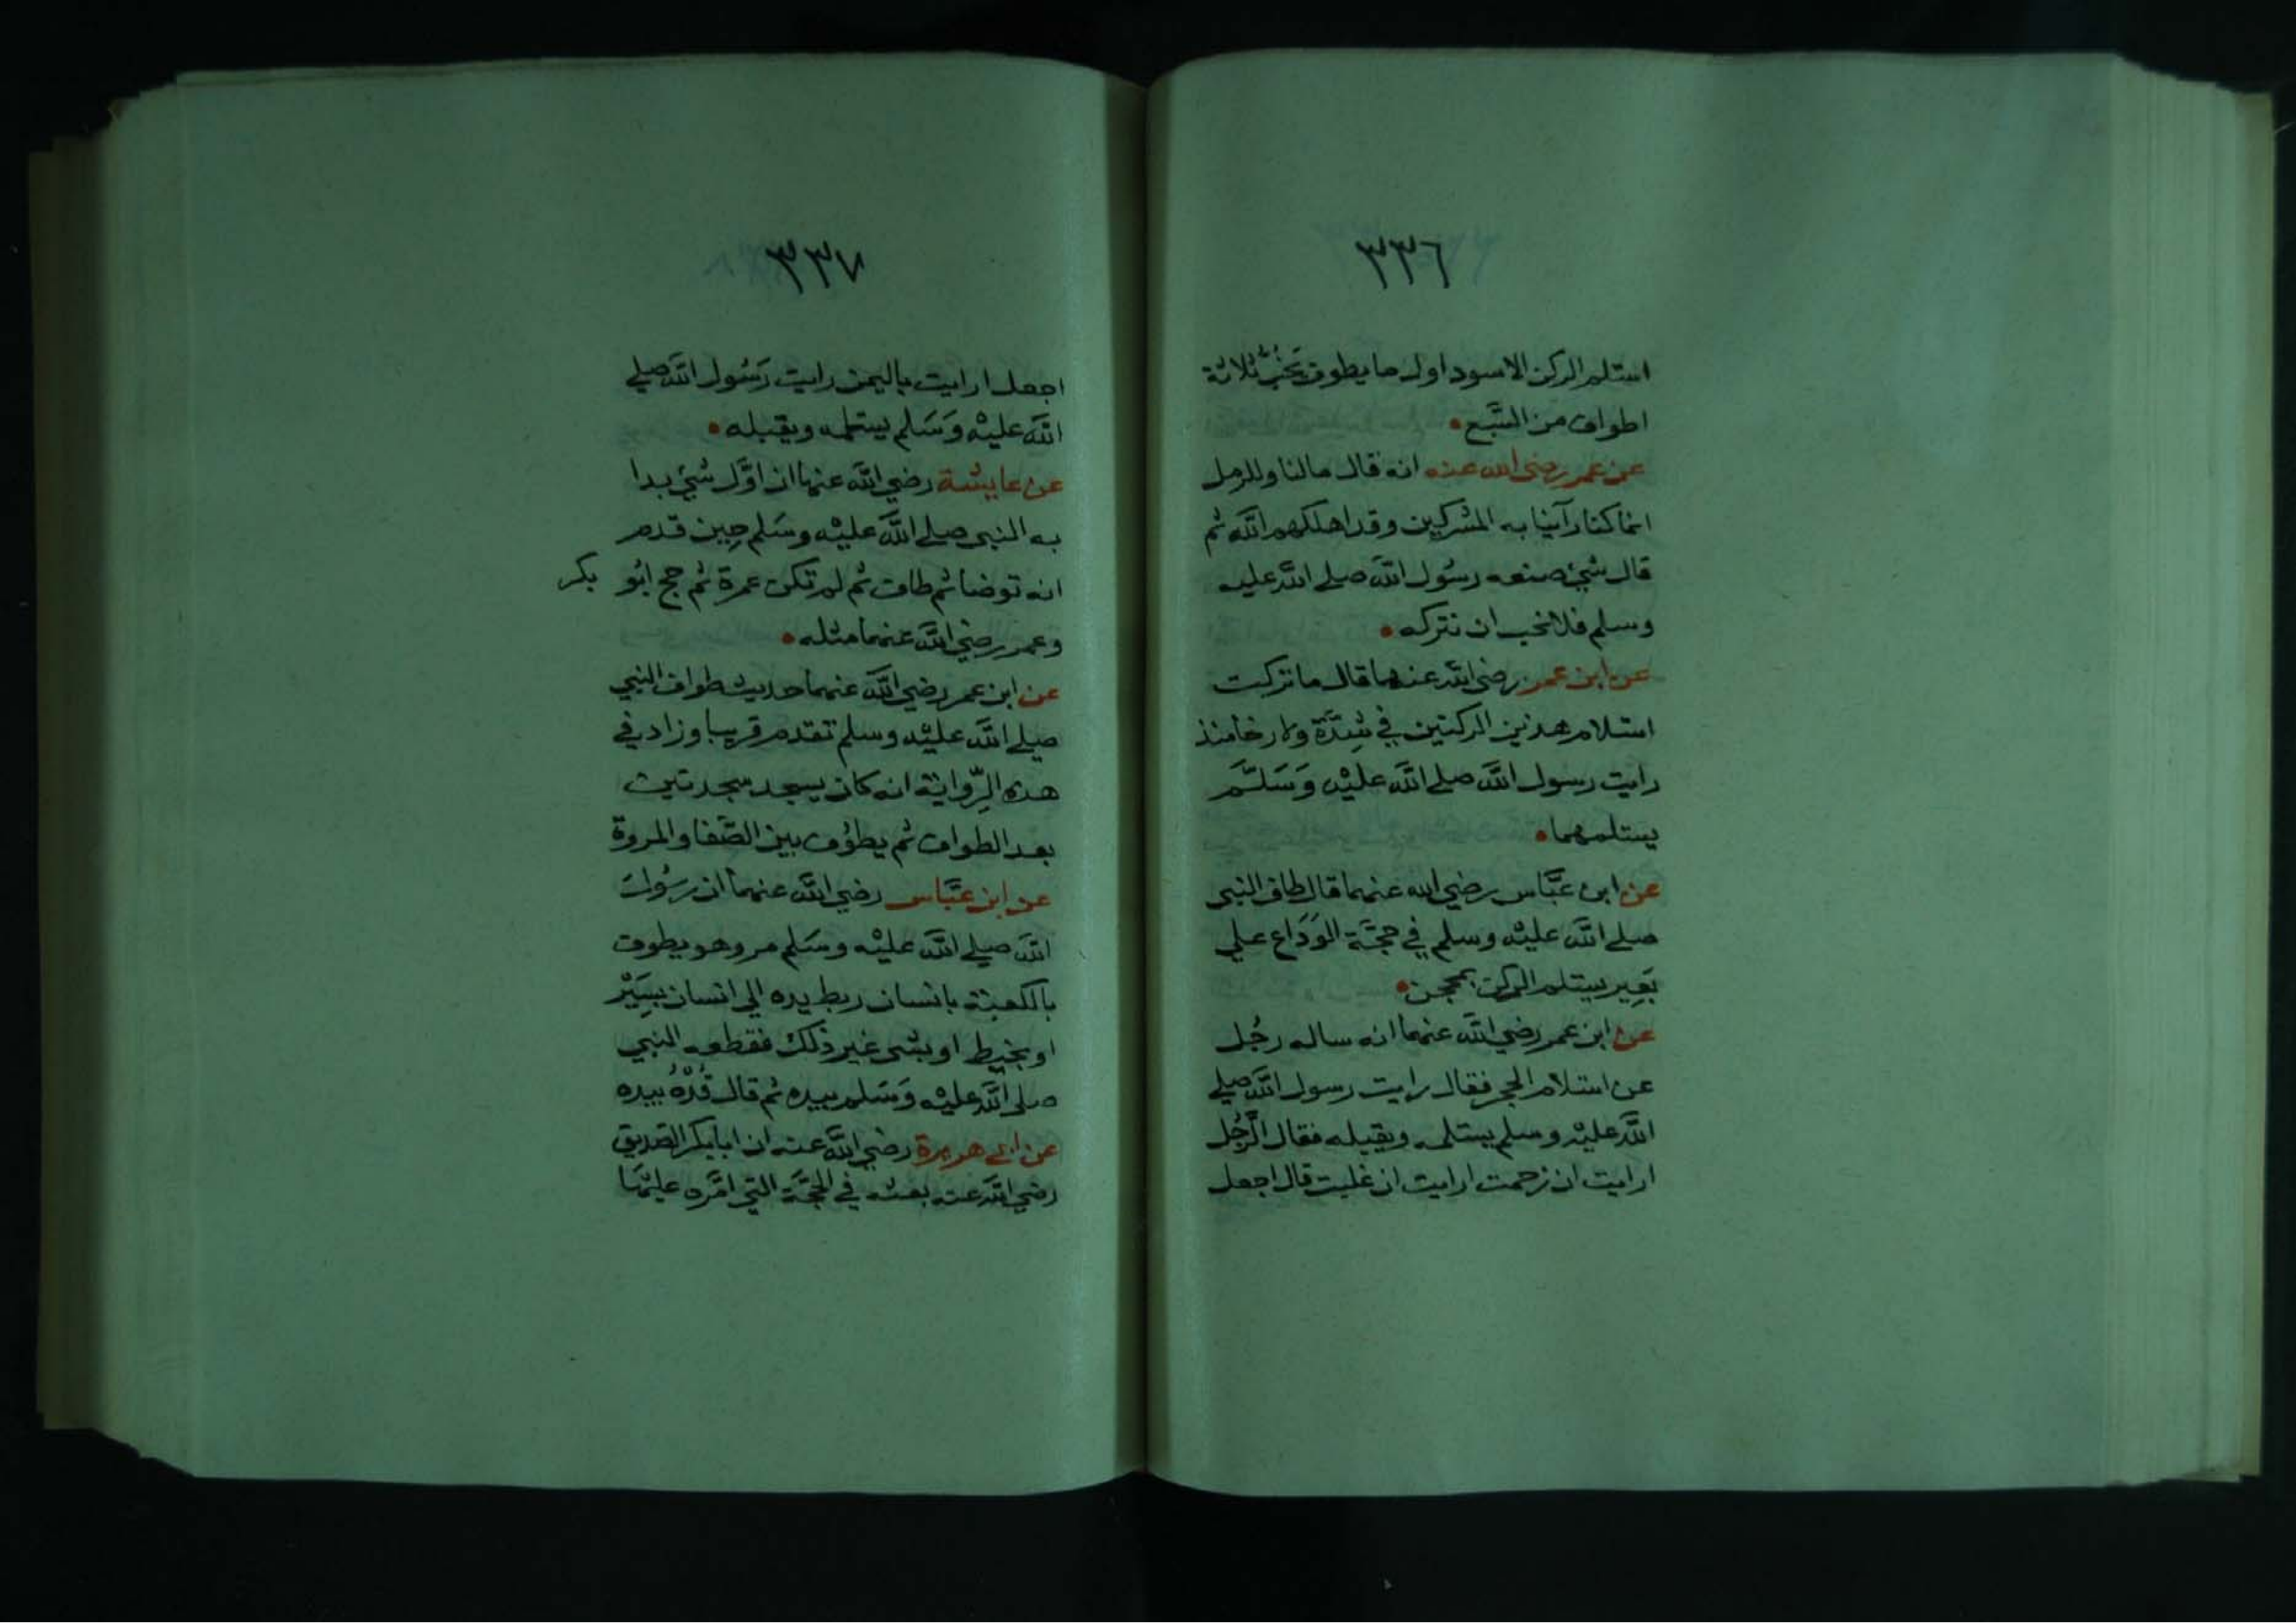 ٣٣٦
استلم الركن الاسود اول ما يطوف يَخُبُّ ثلاثة
اطواف من السَّبع •
عن عمر رضي الله عنه انه قال مالنا وللرمل
انما كنا رآيينا به المشركين وقد اهلكهم الله ثم
قال شئ صنعه رسُول الله صلى الله عليه
وسلم فلا نحب ان نتركه •
عن ابن عمر رضي الله عنهما قال ما تركت
استلام هذين الركنين في شِدَّة ولا رخا منذ
رايت رسول الله صلى الله عليْه وَسَلَّم
يستلمهما •
عن ابن عَبَّاس رضي الله عنهما قال طاف النبي
صلى الله عليْه وسلم في حجَّة الوَدَاع على
بَعِير يستلم الركن بمحجن •
عن ابن عمر رضي الله عنهما انه ساله رجُل
عن استلام الحجر فقال رايت رسول الله صلى
الله عليْه وسلم يستلمه ويقبله فقال الرَّجُل
ارايت ان زحمت ارايت ان غلبت قال اجعل
٣٣٧
اجعل ارايت باليمن رايت رَسُول الله صلى
الله عليْه وَسَلم يستلمه ويقبله •
عن عايشة رضي الله عنها ان اوَّل شئ بدا
به النبي صلى الله عليْه وسَلم حِين قدم
انه توضا ثم طاف ثم لم تكن عمرة ثم حج ابُو بكر
وعمر رضي الله عنهما مثله •
عن ابن عمر رضي الله عنهما حديث طواف النبي
صلى الله عليْه وسلم تقدم قريبا وزاد في
هذه الرِّواية انه كان يسجد سجدتين
بعد الطواف ثم يطوُف بين الصَّفا والمروة
عن ابن عَبَّاس رضي الله عنهما ان رسُول
الله صلى الله عليْه وسَلم مر وهو يطوف
بالكعبة بانسان ربط يده الى انسان بسَيْر
او بخيط او بشى غير ذلك فقطعه النبي
صلى الله عليْه وَسَلم بيده ثم قال قُدْهُ بيده
عن ابي هريرة رضي الله عنه ان ابابكر الصديق
رضي الله عنه بعثه في الحجَّة التي امَّره عليْها